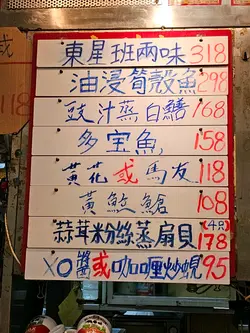 或
118
東星班兩味318
油浸筍殼魚298
豉汁蒸白鱔168
多宝魚158
黄花或馬友118
黃鯻鱠108
蒜茸粉絲蒸扇貝(4只)178
XO醬或咖喱炒蜆95